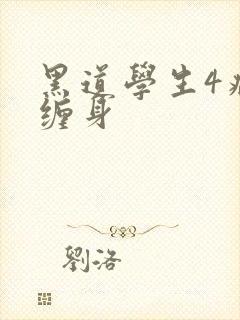 黑道學生4
缠身
劉洛